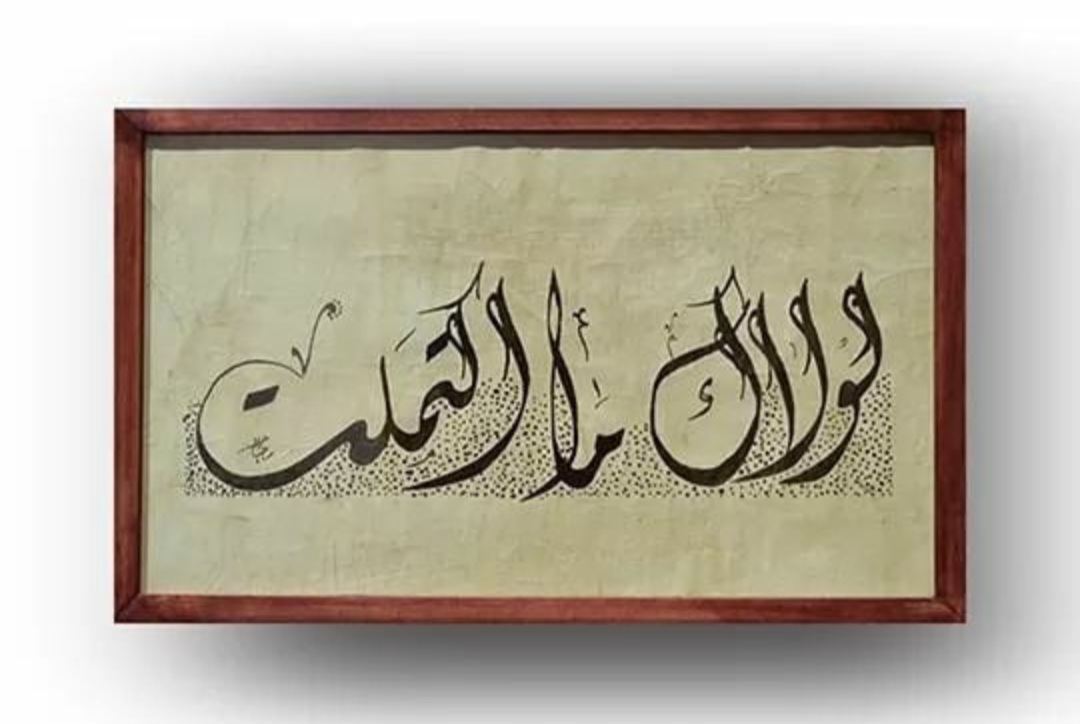 لولاك ما اكتملت